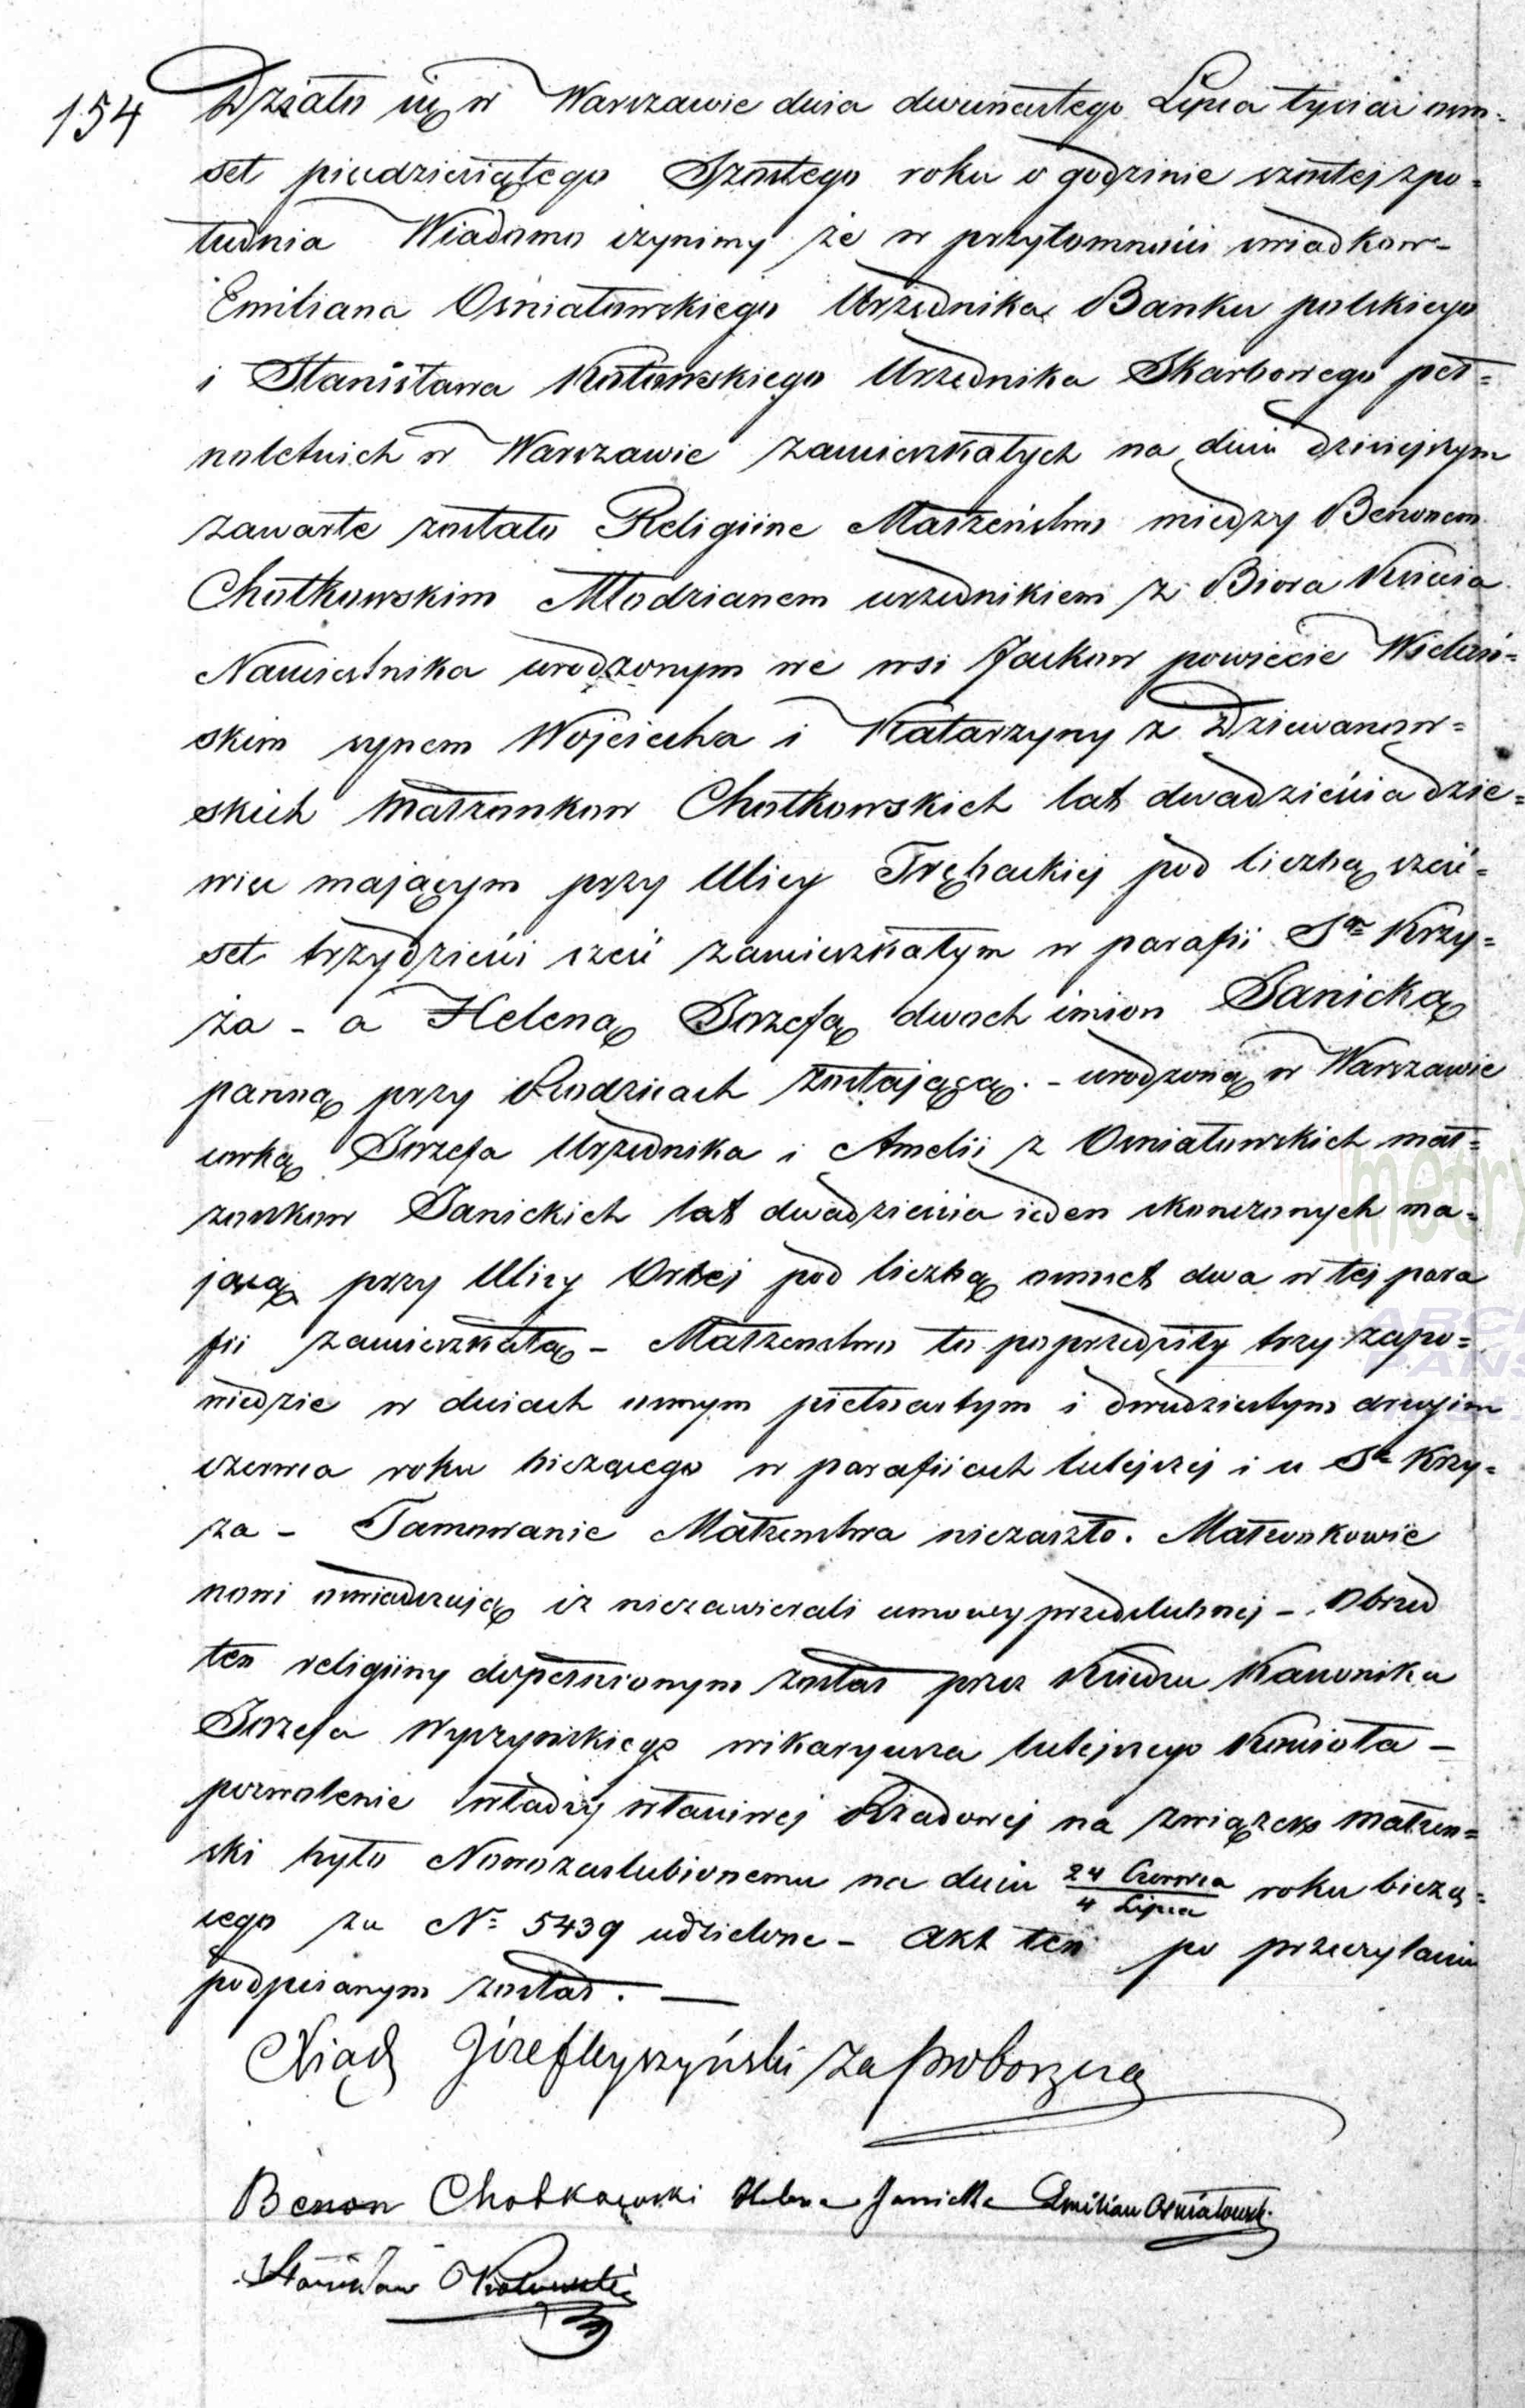 154 Działo się w Warszawie dnia dwunastego Lipca tysiąc osm=
set piędziesiątego Szóstego roku o godzinie szóstej z po=
łudnia Wiadomo czynimy że w przytomności swiadkow
Emiliana Osniałowskiego Urzędnika Banku polskiego
i Stanisława Urzędnika Skarbowego peł=
noletnich w Warszawie zamieszkałych na dniu dzisiejszym
zawarte zostało Religiine Małżeństwo między Benonem
Chotkowskim Młodzianem urzędnikiem z Biora Xięcia
Namiestnika urodzonym we wsi Jackow powiecie Wieluń=
skim synem Wojciecha i Katarzyny z Dziewanow=
skich Małżonkow Chotkowskich lat dwadzieścia dzie=
więc mającym przy Ulicy Trębackiej pod liczbą sześć=
set trzydzieści sześć zamieszkałym w parafii Sgo Krzy=
ża - a Heleną Jozefą dwoch imion Janicką
panną przy Rodzicach zostającą. - urodzoną w Warszawie
corką Jozefa Urzędnika i Amelii z Osniałowskich mał=
żonkow Janickich lat dwadzieścia ieden skonczonych ma=
jącą przy Ulicy Orlej pod liczbą osmset dwa w tej para
fii zamieszkałą - Małżenstwo to poprzedziły trzy zapo=
wiedzie w dniach osmym pietnastym i dwudziestym drugim
czerwca roku bieżącego w parafiiach tutejszej i u Sgo Krzy=
ża - Tamowanie Małżenstwa niezaszło. Małżonkowie
nowi oswiadczają iż niezawierali umowy przedslubnej - Obrzęd
ten religiiny dopełnionym został przez Xiędza Kanonika
Jozefa Wyszyńskiego wikaryusza tutejszego Kościoła -
pozwolenie władzy własciwej Rządowej na związek małżen=
ski było Nowozaslubionemu na dniu 24 Czerwca / 4 Lipca roku bieżą=
cego za No 5439 udzielone - Akt ten po przeczytaniu
podpisanym został. -
Xiądz Józef Wyszyński za Proboszcza
Benon Chotkowski Helena Janicka Emilian Osniałowski
Stanisław